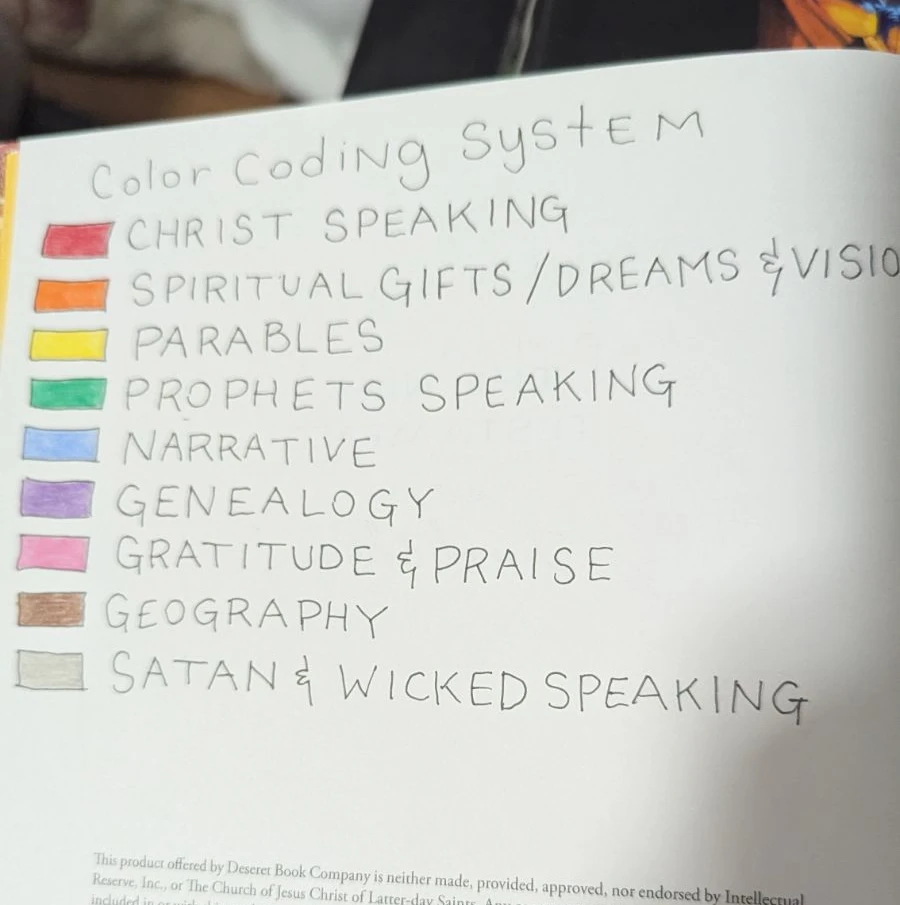 Color Coding System
CHRIST SPEAKING
SPIRITUAL GIFTS/DREAMS & VISIO
PARABLES
PROPHETS SPEAKING
NARRATIVE
GENEALOGY
GRATITUDE & PRAISE
GEOGRAPHY
SATAN & WICKED SPEAKING
This product offered by Deseret Book Company is neither made, provided, approved, nor endorsed by Intellectual
Reserve, Inc., or The Church of Jesus Christ of Latter-day Saints.
included in or